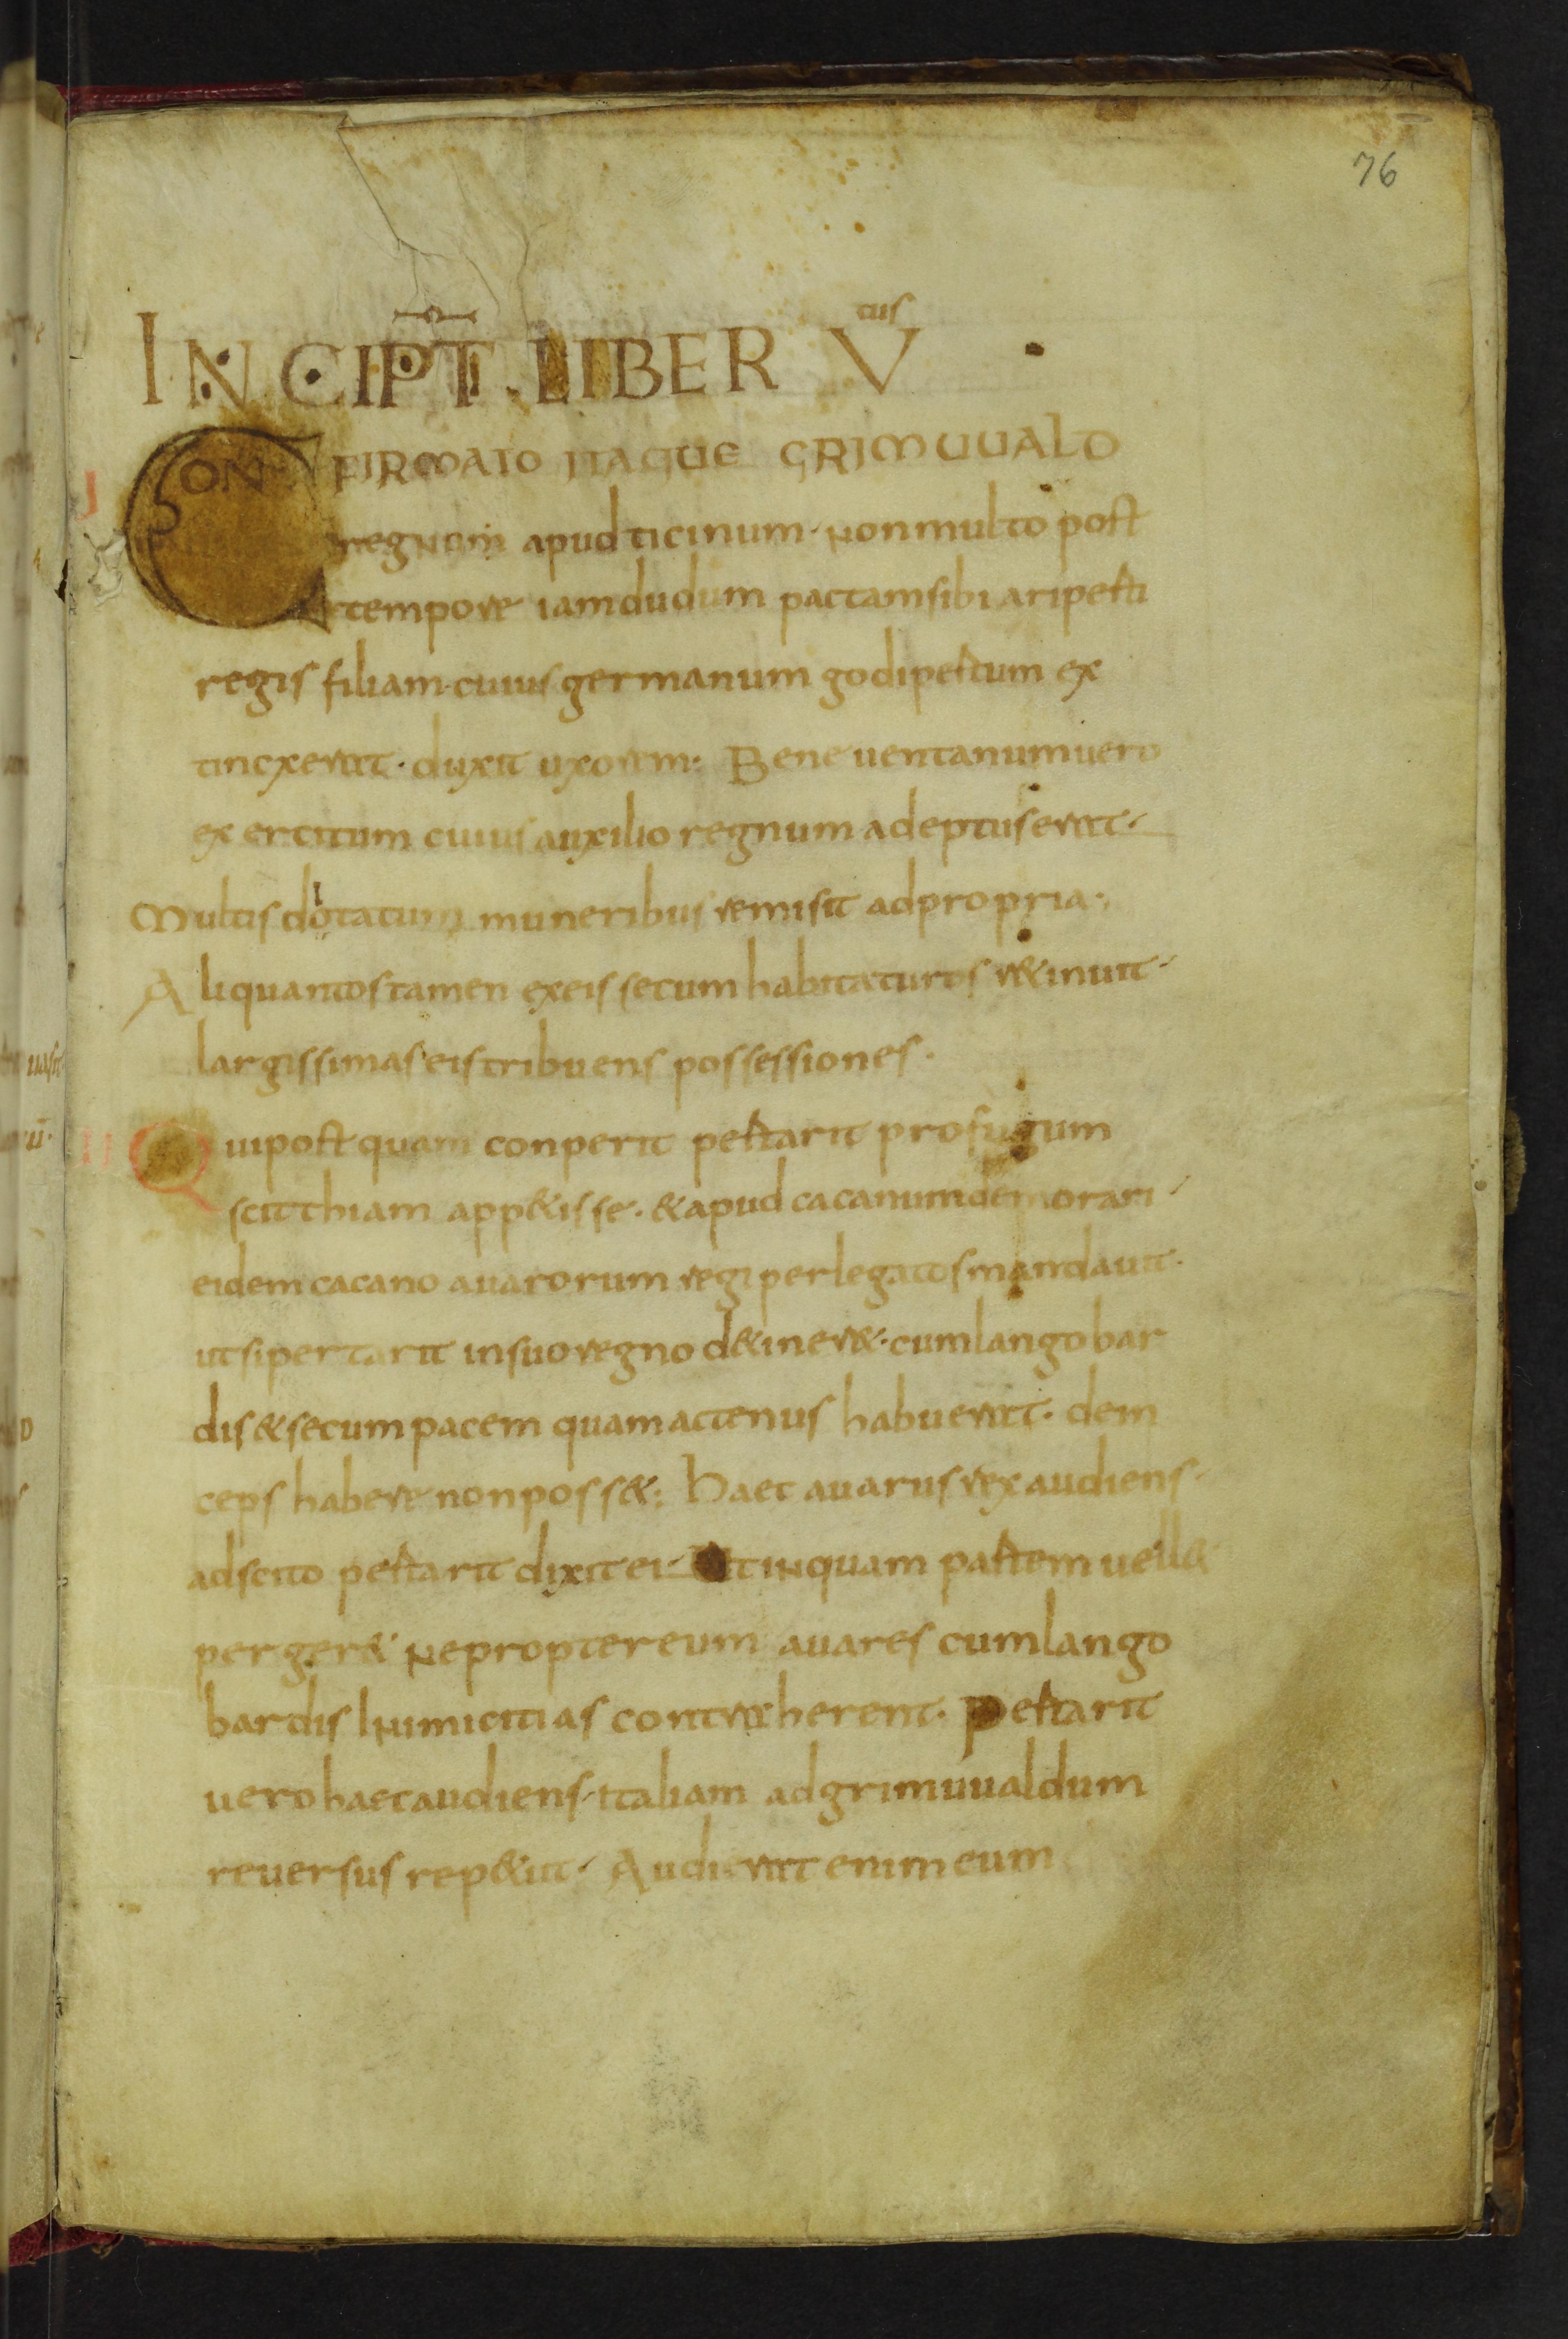 76
INCIPT̅. LIBER Vtus
I CONFIRMATO ITAQUE GRIMUUALD
regnum apud ticinum. non multo post
tempore iamdudum pactam sibi aripesti
regis filiam. cuius germanum godipestum ex
tincxerat. duxit uxorem: Beneuentanum uero
exercitum cuius auxilio regnum adeptus erat.
Multis ditatum muneribus remisit ad propria.
Aliquantos tamen ex eis secum habitaturos r&inuit.
largissimas eis tribuens possessiones.
II Qui postquam conperit pestarit profugum
scitthiam app&isse. & apud cacanum demorari.
eidem cacano auarorum regi per legatos mandauit.
ut si pertarit in suo regno d&iner&. cum langobar
dis & secum pacem quam actenus habuerat. dem
ceps habere non poss&: haec auarus rex audiens.
adscito pestarit dixit ei. Ut inquam pastem uell&
perger& ne propter eum auares cum lango
bardis Inimicitias contraherent. Pestarit
uero haec audiens. Italiam ad grimuualdum
reuersus rep&iit. Audierat enim eum